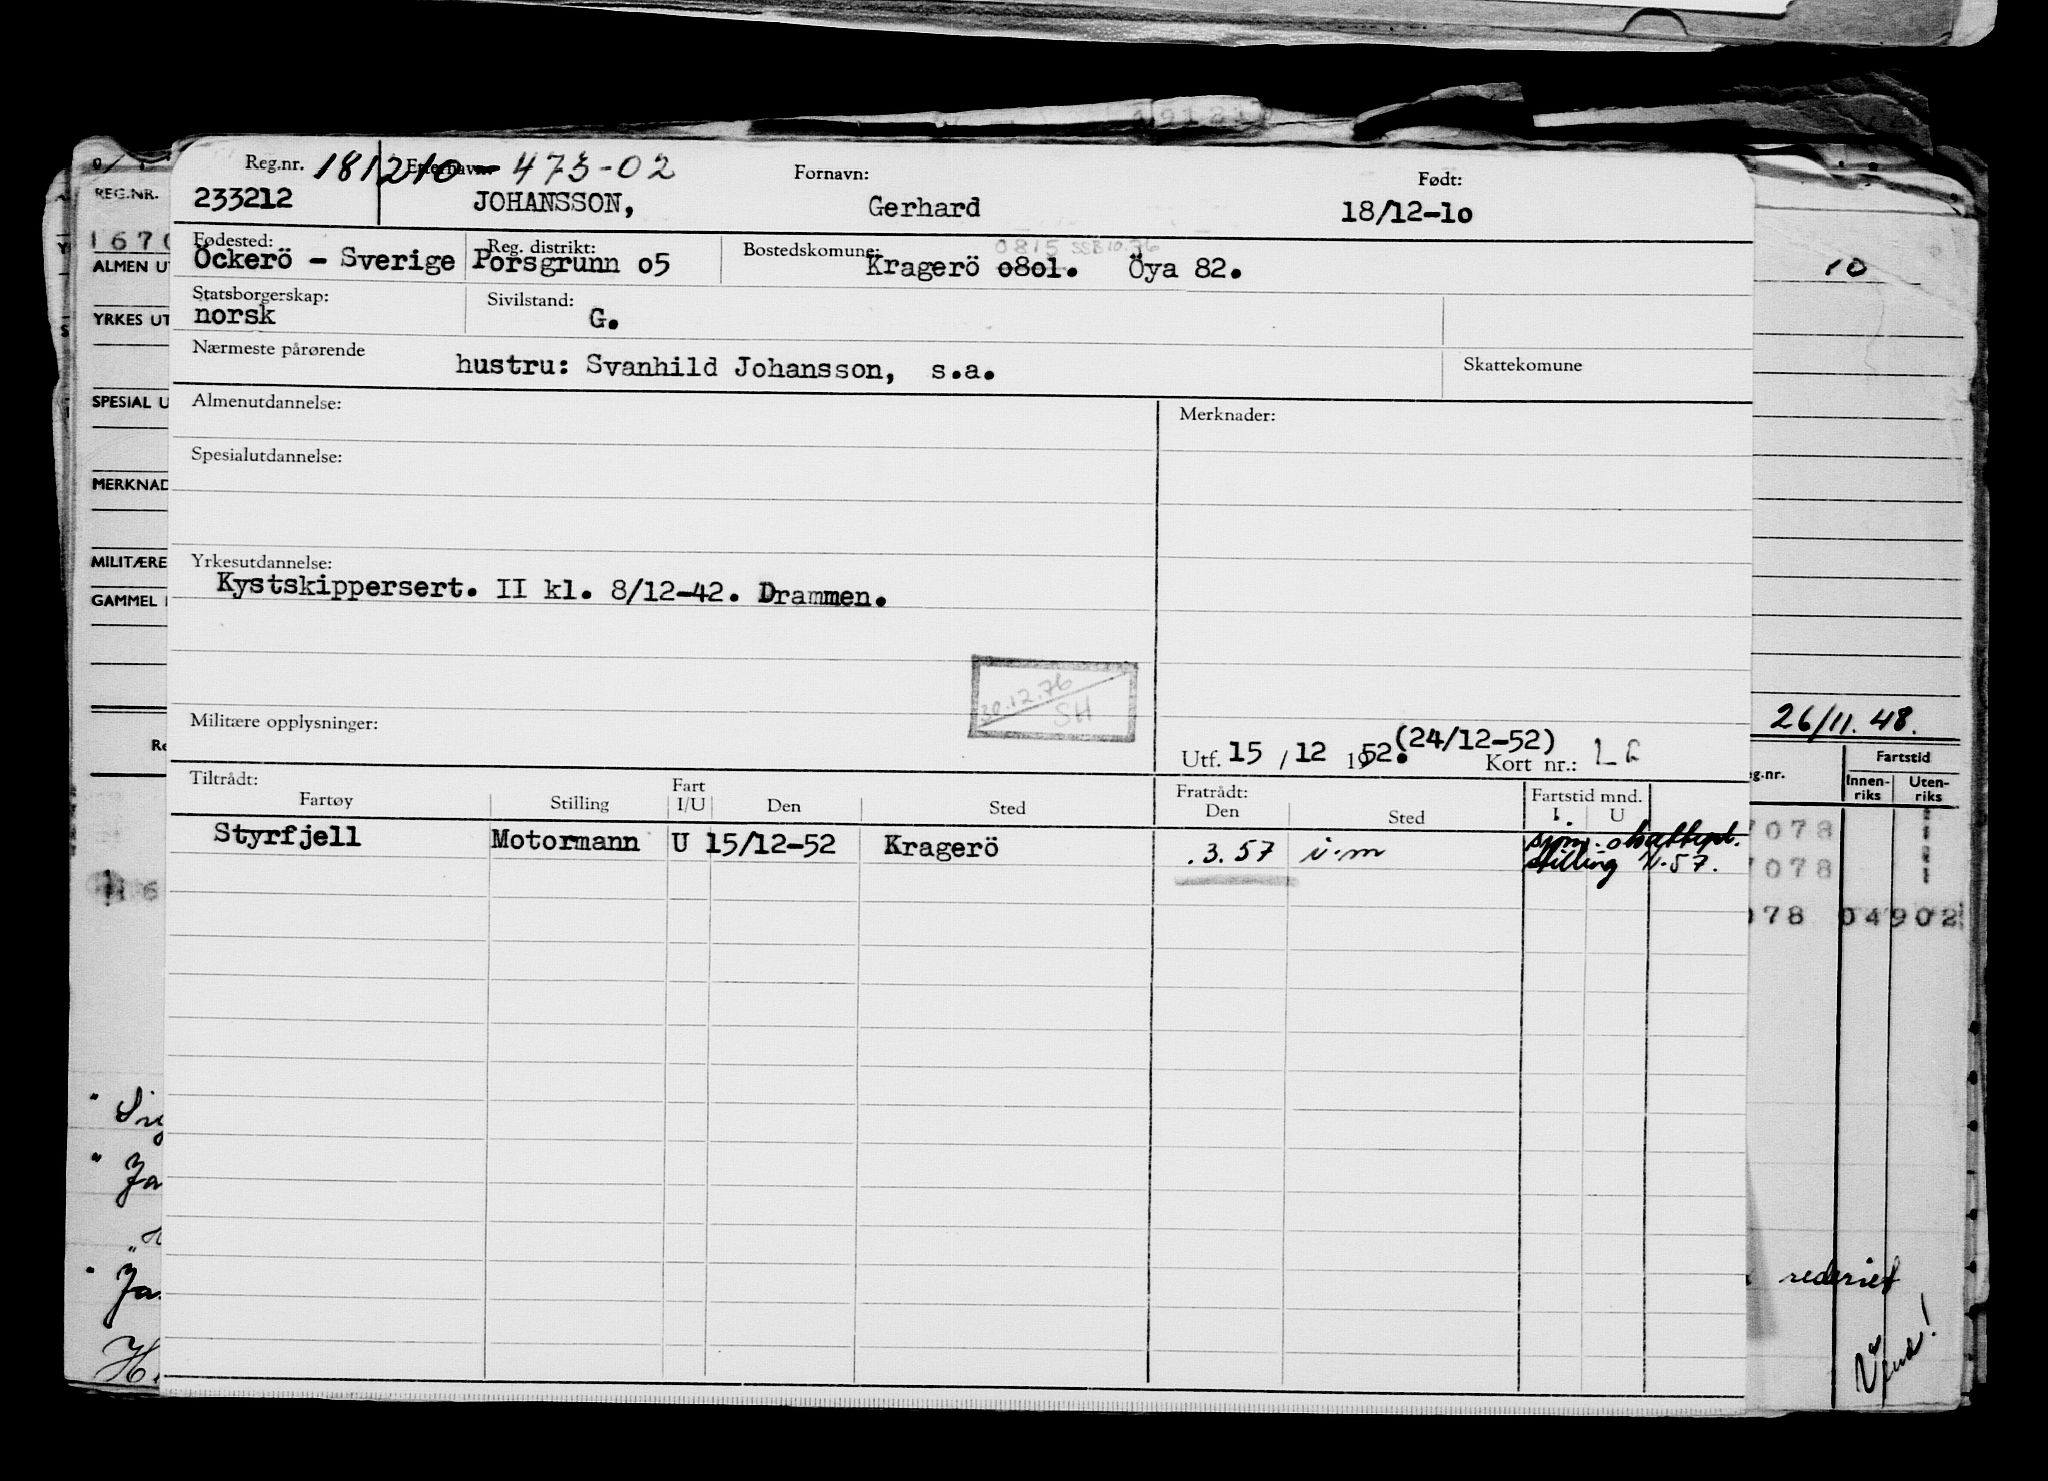 Reg.nr. 181210-473-02 Etternavn: Fornavn: Født:
233212 JOHANSSON, Gerhard 18/12-1o
Fødested: Reg. distrikt: Bostedskomune: 0815 SSB 10.76
Öckerö - Sverige Porsgrunn o5 Kragerö o8o1. Öya 82.
Statsborgerskap: Sivilstand:
norsk G.
Nærmeste pårørende Skattekomune
hustru: Svanhild Johansson, s.a.
Almenutdannelse: Merknader:
Spesialutdannelse:
Yrkesutdannelse:
Kystskippersert. II kl. 8/12-42. Drammen.
30.12.76
SH
Militære opplysninger:
Utf. 15 / 12 1952. (24/12-52) Kort nr.:
Tiltrådt: Fratrådt: Fartstid mnd.
Fartøy Stilling Fart I/U Den Sted Den Sted I. U
Styrfjell Motormann U 15/12-52 Kragerö .3.57 i.m
stilling 1/1-57.
REG.NR.
1670
ALMEN UT
YRKES UT
SPESIAL U
MERKNAD
MILITÆRE
GAMMEL
Re
10
26/11.48.
g.nr. Fartstid
Innenriks Utenriks
7078
7078
078 04902
rederiet
Vend!